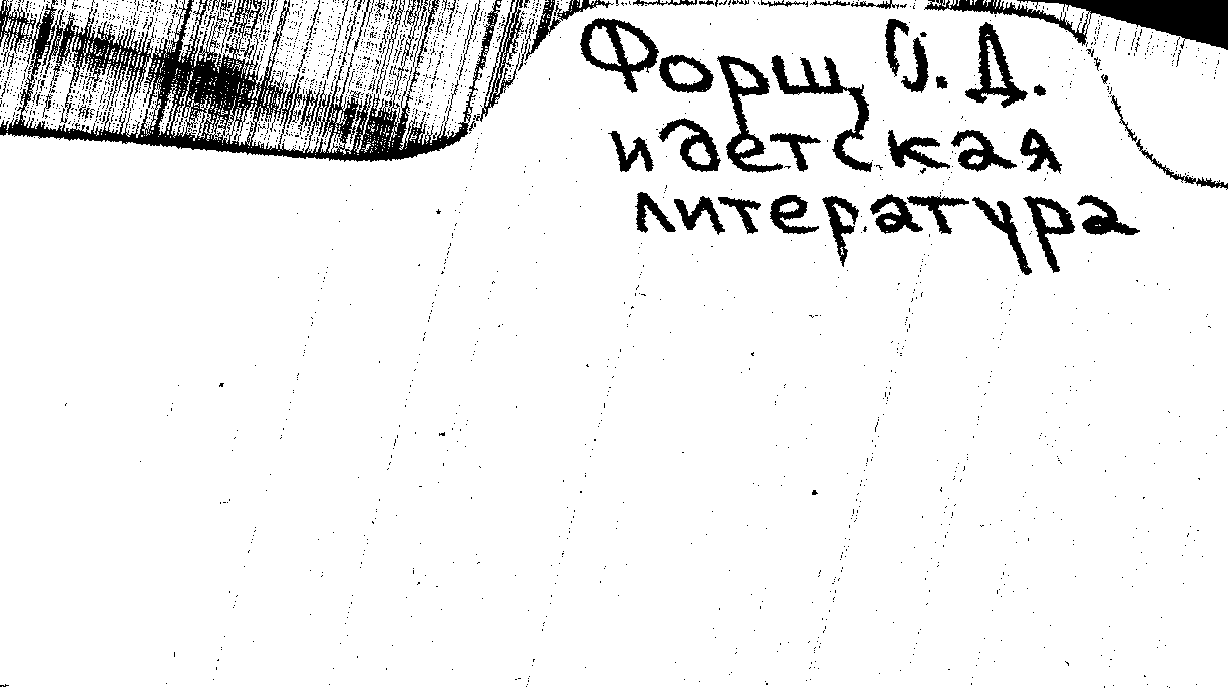 Форш, О. Д.
и детская
литература